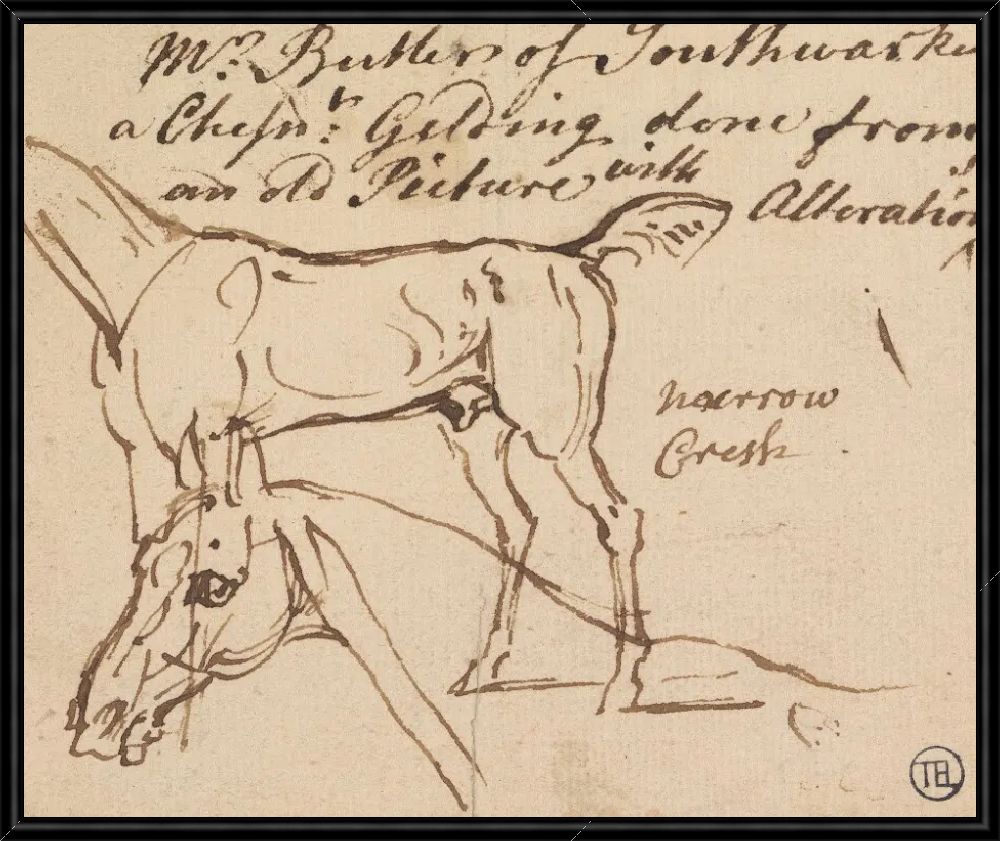 Mr. Butler of Southwark
a Chesnt: Gelding done from
an old Picture with Alteration
narrow
Crest
TEL